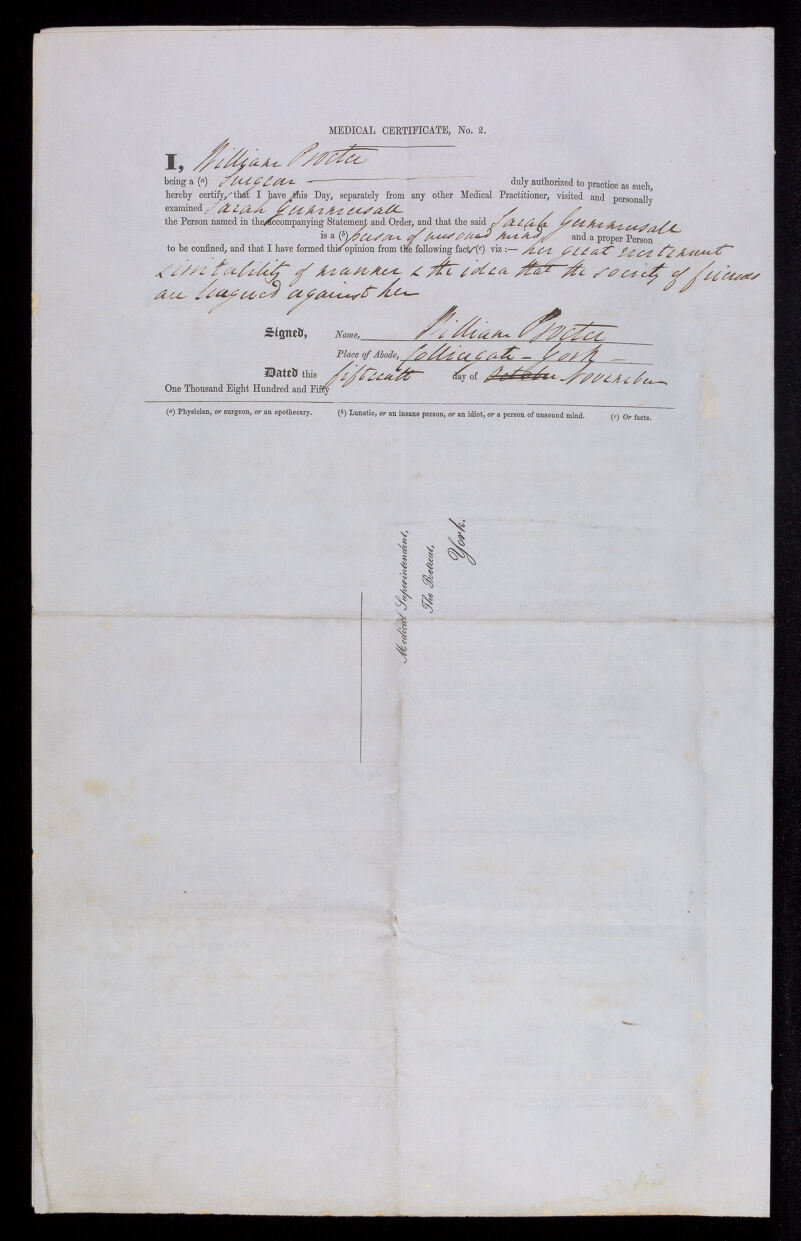 MEDICAL CERTIFICATE, No. 2.
I, William Procter
being a (a) Surgeon duly authorized to practice as such,
hereby certify, that I have this Day, separately from any other Medical Practitioner, visited and personally
examined Sarah Gummersall
the Person named in the accompanying Statement and Order, and that the said Sarah Gummersall
is a (b) person of unsound mind, and a proper Person
to be confined, and that I have formed this opinion from the following fact (c) viz:— her great excitement
& irritability of manner & the idea that the society of friends
are leagued against her
Signed, Name, William Procter
Place of Abode, Colliergate - York -
Dated this fifteenth day of October November
One Thousand Eight Hundred and Fifty
(a) Physician, or surgeon, or an apothecary. (b) Lunatic, or an insane person, or an idiot, or a person of unsound mind. (c) Or facts.
Medical Superintendent,
The Retreat,
York.